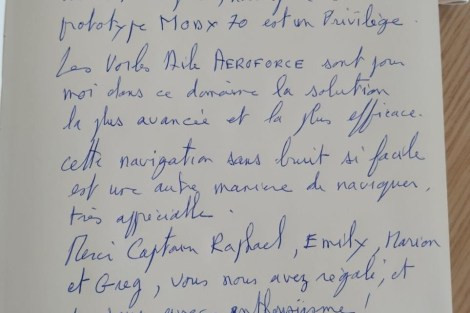 prototype MODX 70 est un Privilège.
Les Voiles Aile AEROFORCE sont pour
moi dans ce domaine la solution
la plus avancée et la plus efficace.
cette navigation sans bruit si facile
est une autre manière de naviguer,
très appréciable.
Merci Captain Raphael, Emily, Marion
et Greg, vous nous avez régalé, et
avec enthousiasme !